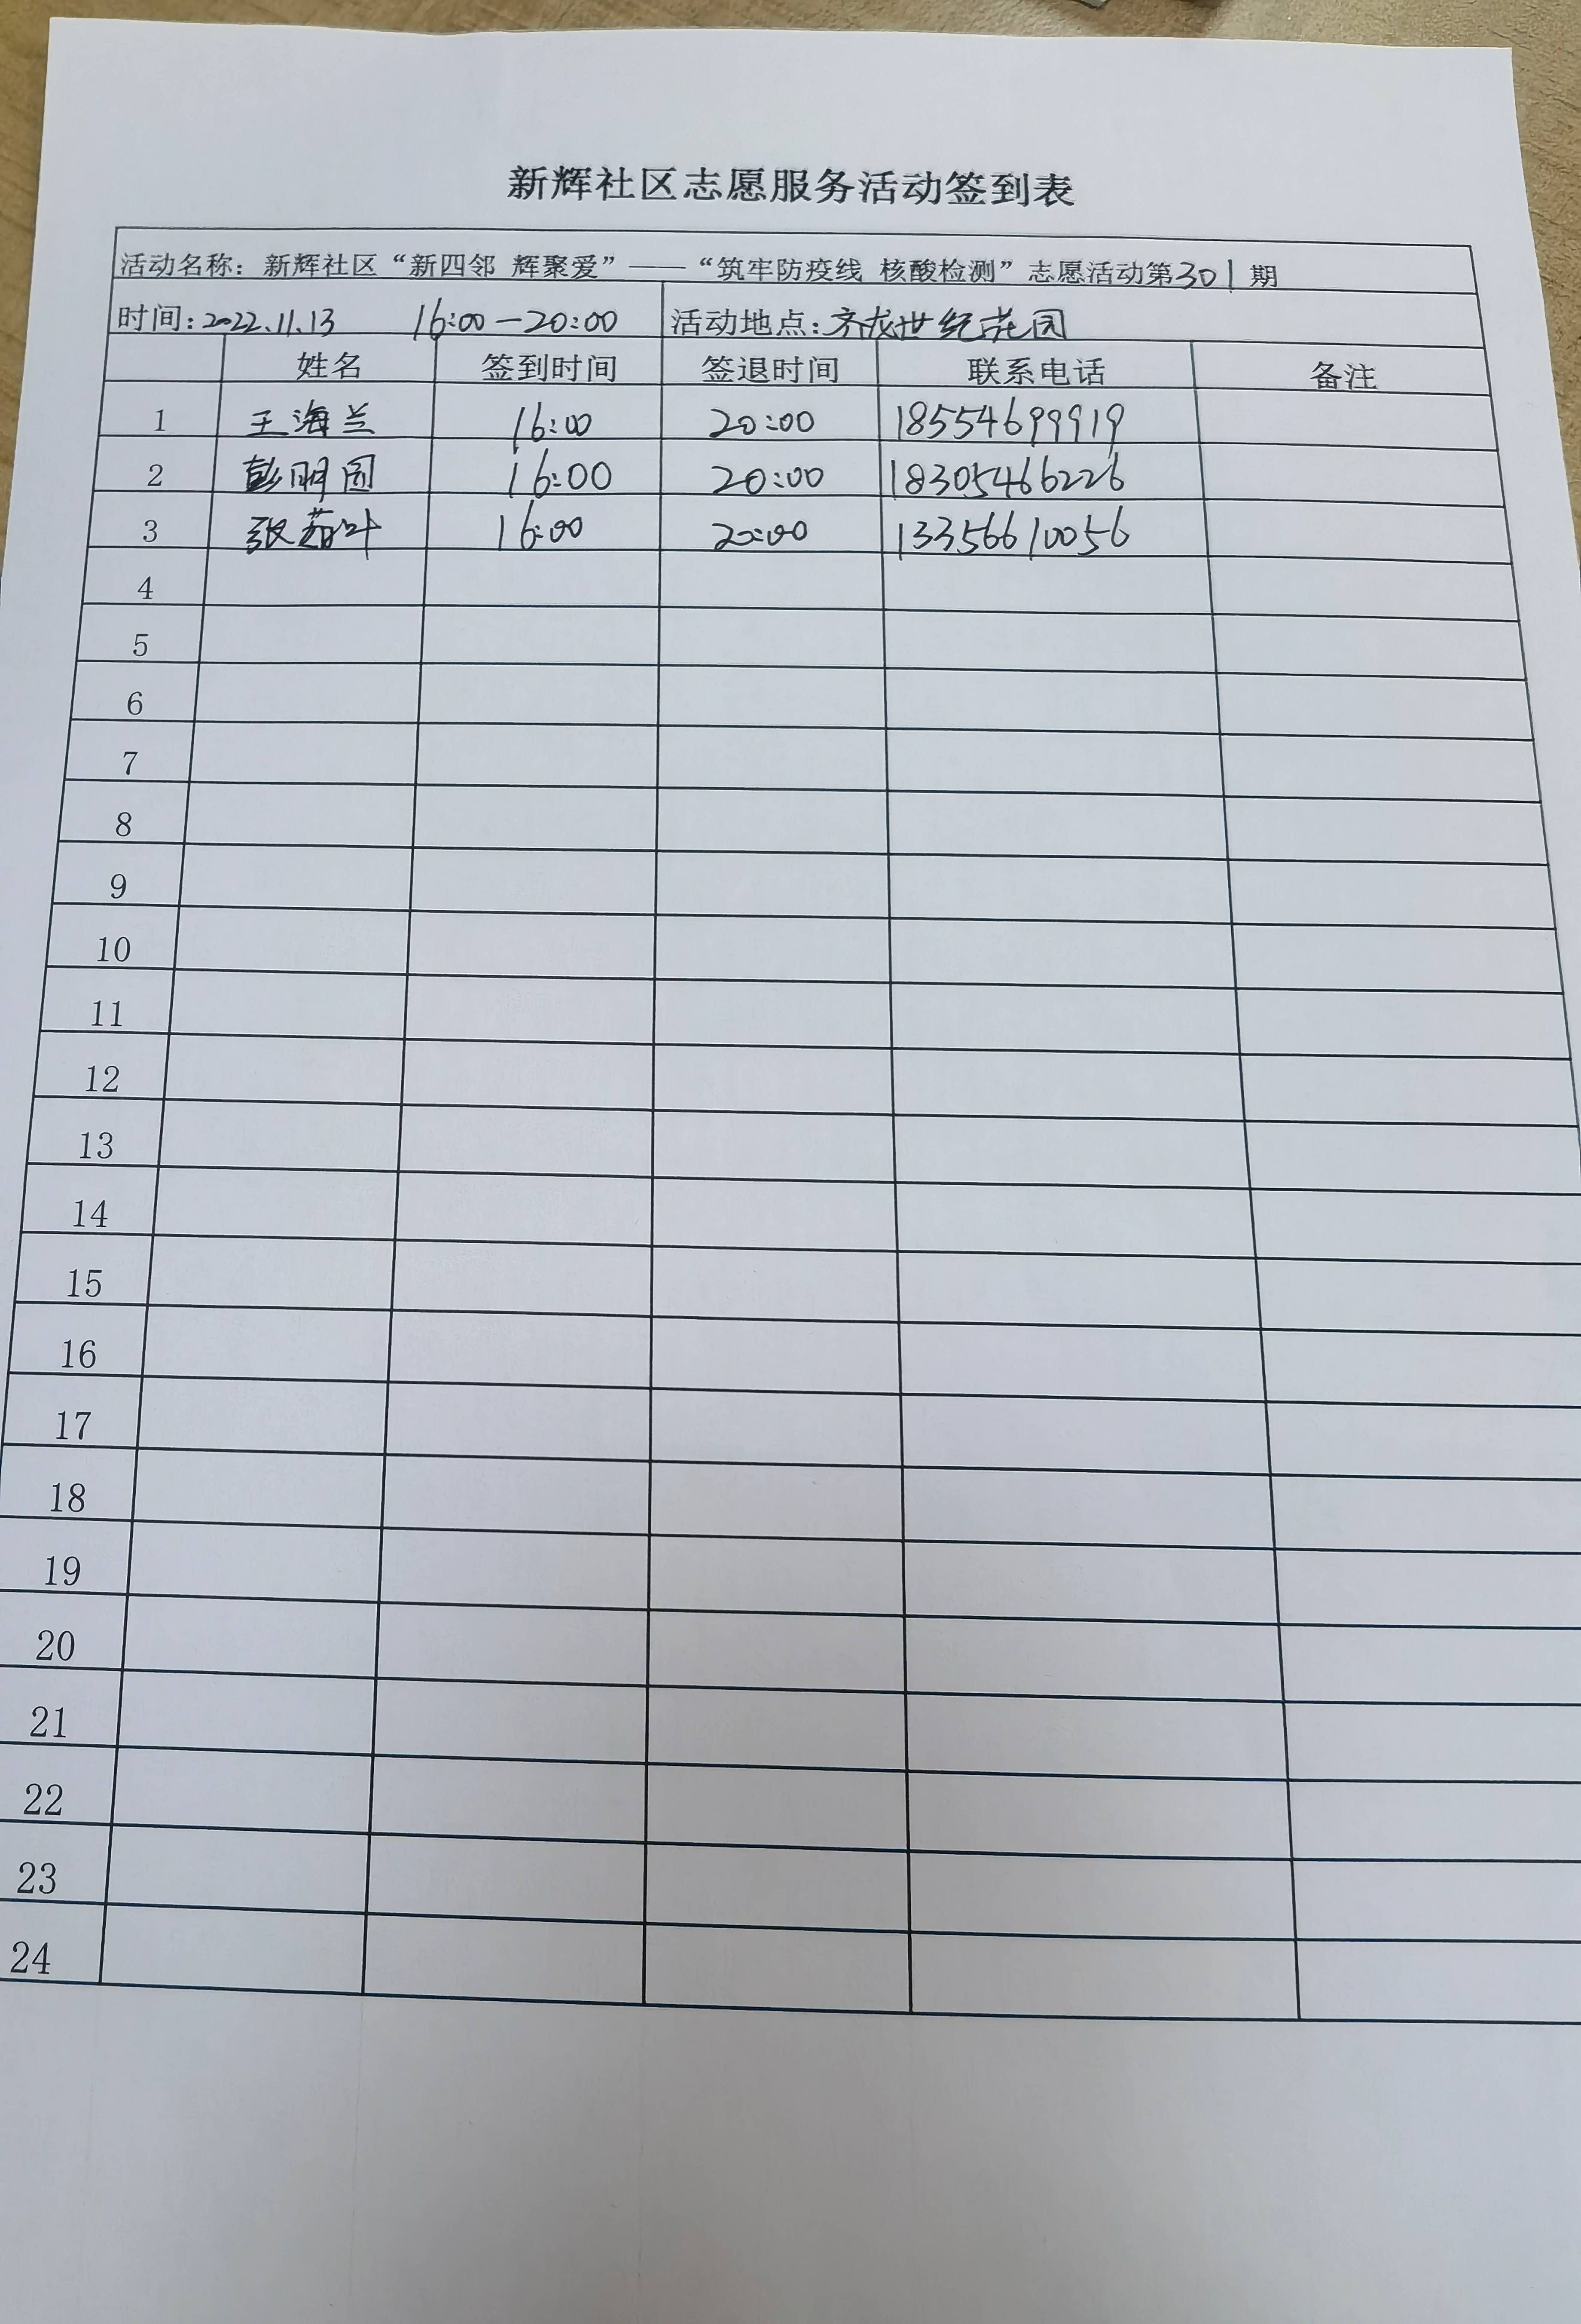 新辉社区志愿服务活动签到表
活动名称：新辉社区“新四邻 辉聚爱”——“筑牢防疫线 核酸检测”志愿活动第301期
时间：2022.11.13 16:00—20:00 活动地点：齐龙世纪花园
姓名 签到时间 签退时间 联系电话 备注
1 王海兰 16:00 20:00 18554699919
2 彭明圆 16:00 20:00 18305466226
3 张 叶 16:00 20:00 13356610056
4
5
6
7
8
9
10
11
12
13
14
15
16
17
18
19
20
21
22
23
24